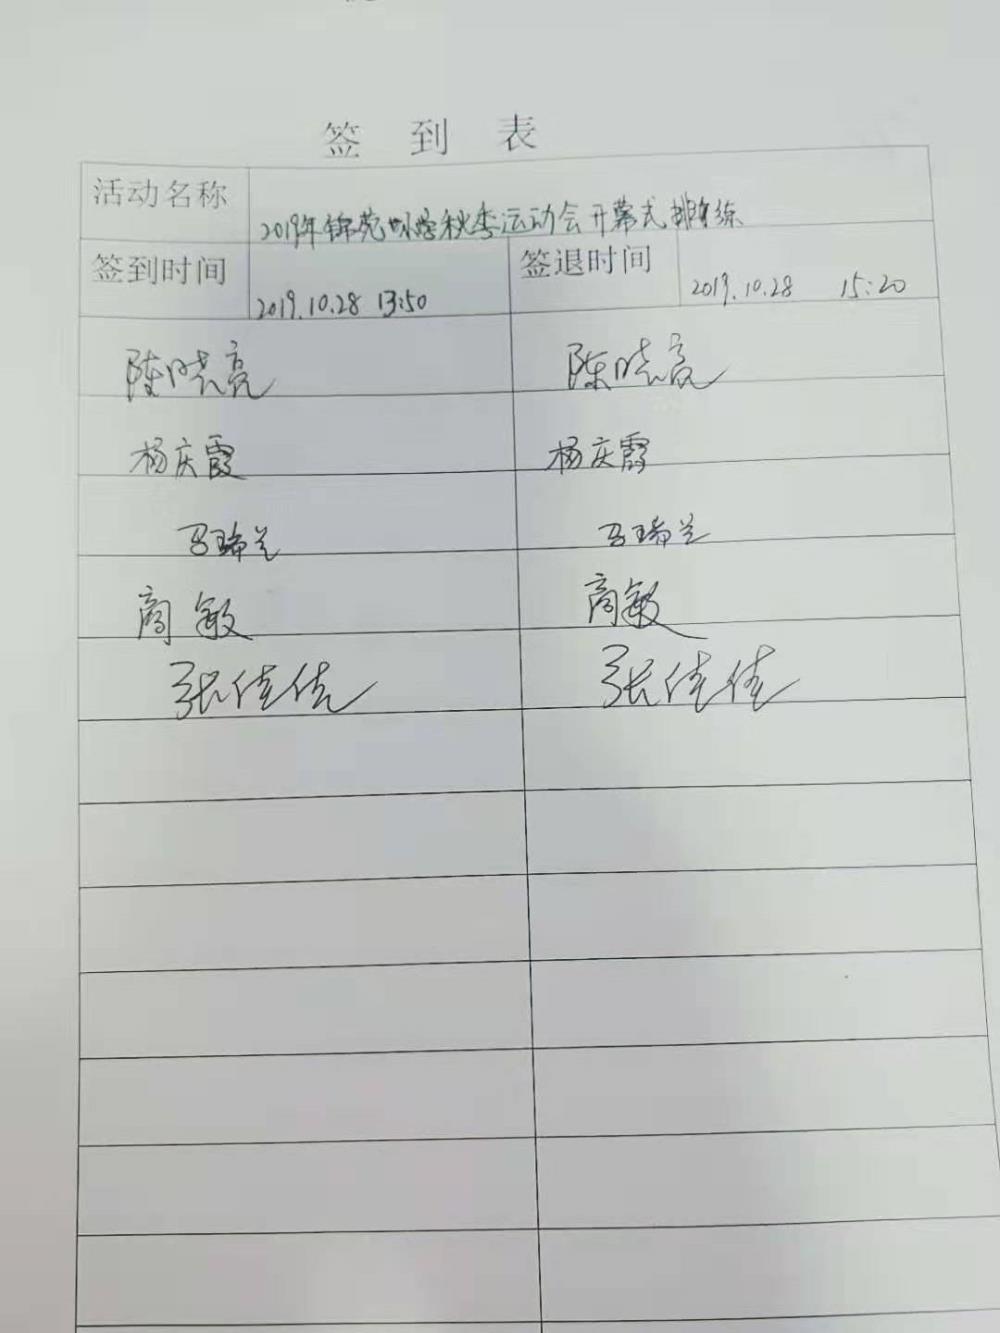 签到表
活动名称 2019年锦苑小学秋季运动会开幕式排练
签到时间 2019.10.28 13:50 签退时间 2019.10.28 15:20
陈晓亮 陈晓亮
杨庆霞 杨庆霞
马瑞兰 马瑞兰
商敏 商敏
张佳佳 张佳佳